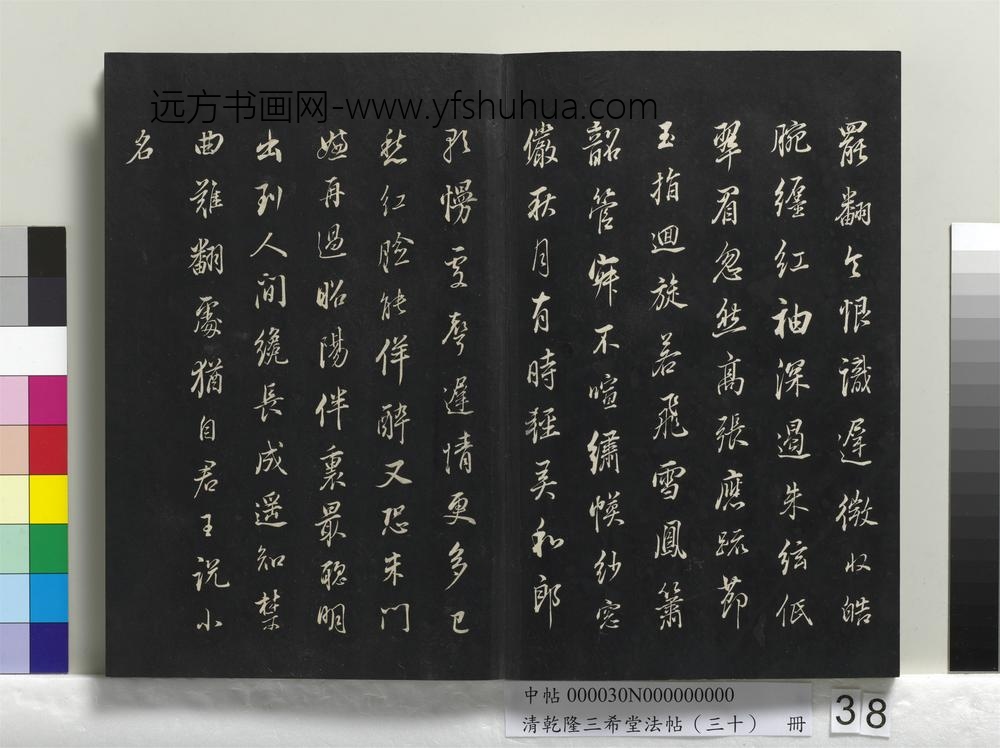 远方书画网-www.yfshuhua.com
罷翻令恨識遲微收皓
腕纏紅袖深遏朱絃低
翠眉忽然高張應疏節
玉指迴旋若飛雪鳳簫
韶管寂不喧繡幙紗窗
儼秋月有時輕美和郎
歌慢處聲遲情更多已
愁紅臉能佯醉又恐朱門
難再過昭陽伴裏最聰明
出到人間纔長成遥知禁
曲難翻處猶自君王說小
名
中帖 000030N000000000
清乾隆三希堂法帖（三十） 冊
38